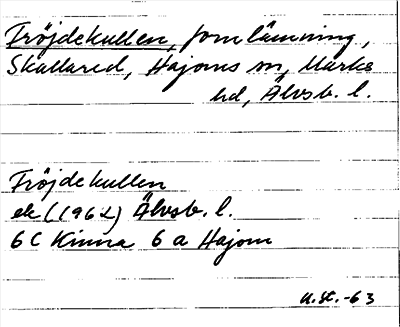 Fröjdekullen, fornlämning,
Skallared, Hajoms sn, Marks
hd, Älvsb. l.
Fröjdekullen
ek (1962) Älvsb. l.
6 C Kinna 6 a Hajom
U.St.-63